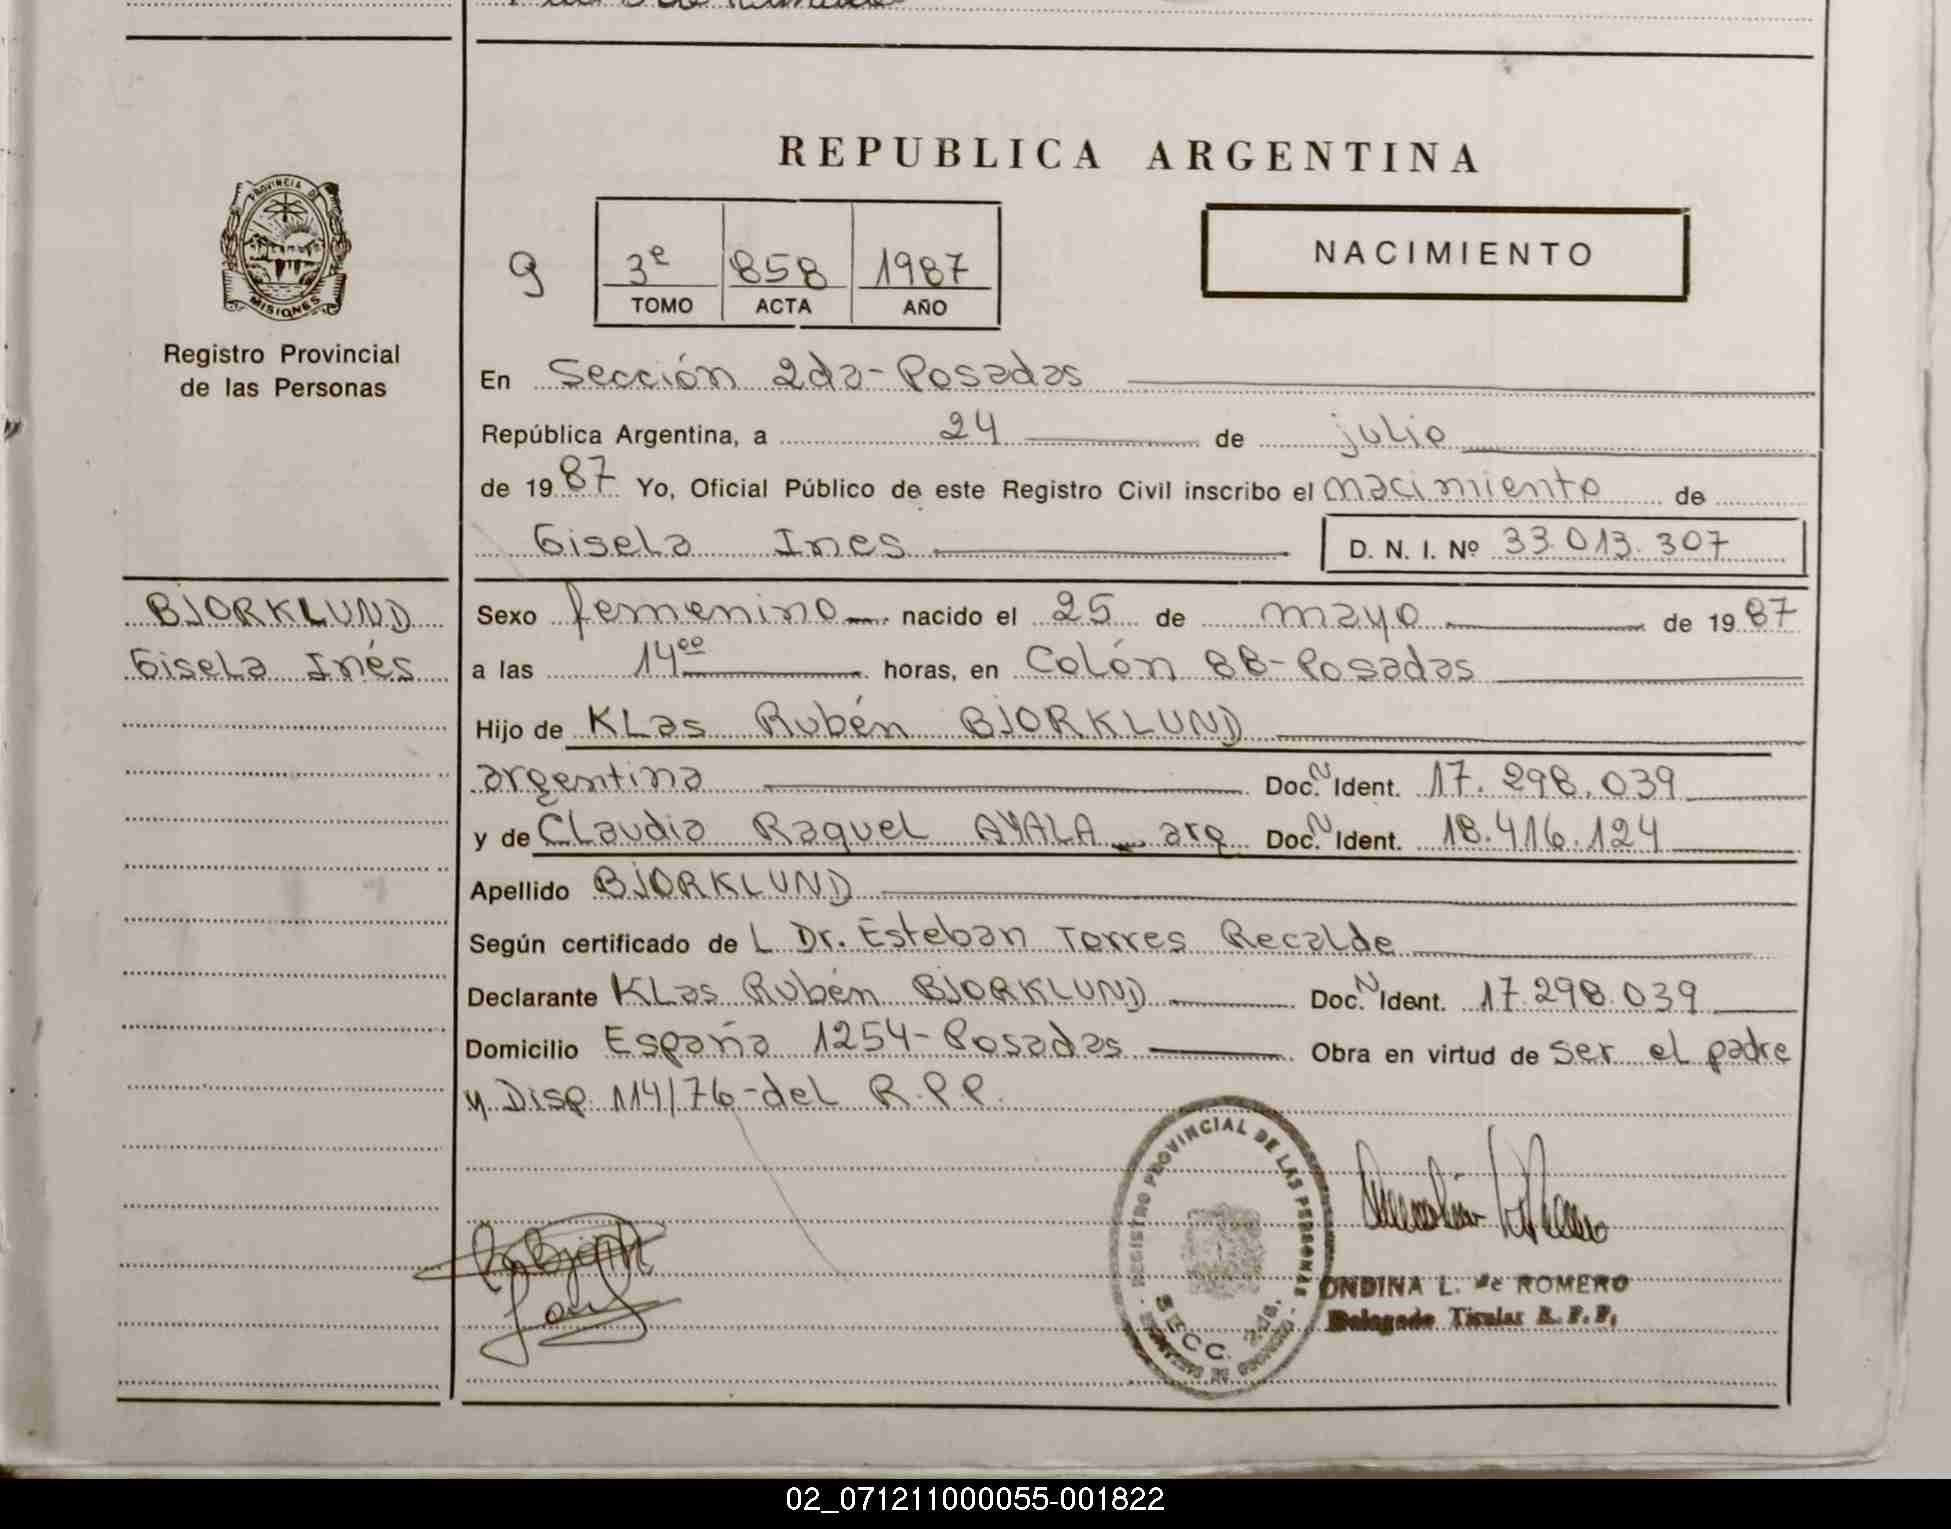 REPUBLICA ARGENTINA
PROVINCIA DE
MISIONES
Registro Provincial
de las Personas
9
3e 858 1987
TOMO ACTA AÑO
NACIMIENTO
En Sección 2da-Posadas
República Argentina, a 24 de julio
de 1987 Yo, Oficial Público de este Registro Civil inscribo el nacimiento de
Gisela Ines D. N. I. Nº 33.013.307
BJORKLUND
Gisela Inés
Sexo femenino nacido el 25 de mayo de 1987
a las 14⁰⁰ horas, en Colón BB-Posadas
Hijo de KLas Rubén BJORKLUND
argentina Doc. N Ident. 17.298.039
y de Claudia Raquel AYALA arg Doc. N Ident. 18.416.124
Apellido BJORKLUND
Según certificado de L Dr. Esteban Torres Recalde
Declarante KLas Rubén BJORKLUND Doc. N Ident. 17.298.039
Domicilio España 1254-Posadas Obra en virtud de ser el padre
y Disp. 114/76-del R.P.P.
REGISTRO PROVINCIAL DE LAS PERSONAS
SECC. 2da.
ONDINA L. de ROMERO
Delegado Titular R. P. P.
02_071211000055-001822